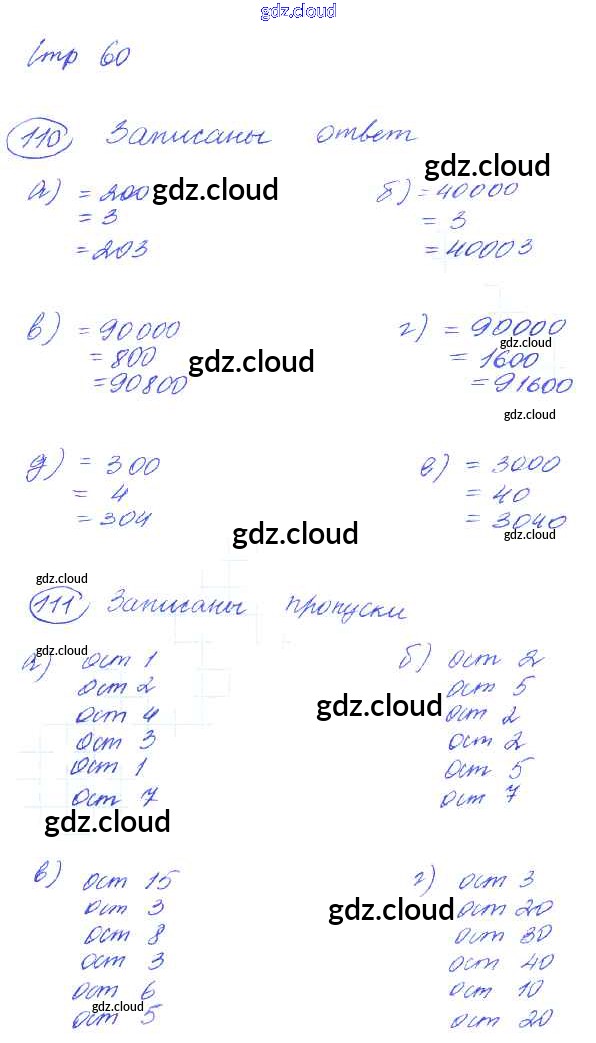 gdz.cloud
Стр 60
110 Записаны ответ
gdz.cloud
а) = 200 gdz.cloud б) = 40000
= 3 = 3
= 203 = 40003
в) = 90000 г) = 90000
gdz.cloud
= 800 gdz.cloud = 1600
= 90800 = 91600
gdz.cloud
д) = 300 е) = 3000
= 4 = 40
= 304 gdz.cloud = 3040
gdz.cloud
gdz.cloud
111 Записаны пропуски
gdz.cloud
а) ост 1 б) ост 2
ост 2 ост 5
ост 4 gdz.cloud ост 2
ост 3 ост 2
ост 1 ост 5
ост 7 ост 7
gdz.cloud
в) ост 15 г) ост 3
ост 3 gdz.cloud ост 20
ост 8 ост 30
ост 3 ост 40
ост 6 ост 10
gdz.cloud
ост 5 ост 20